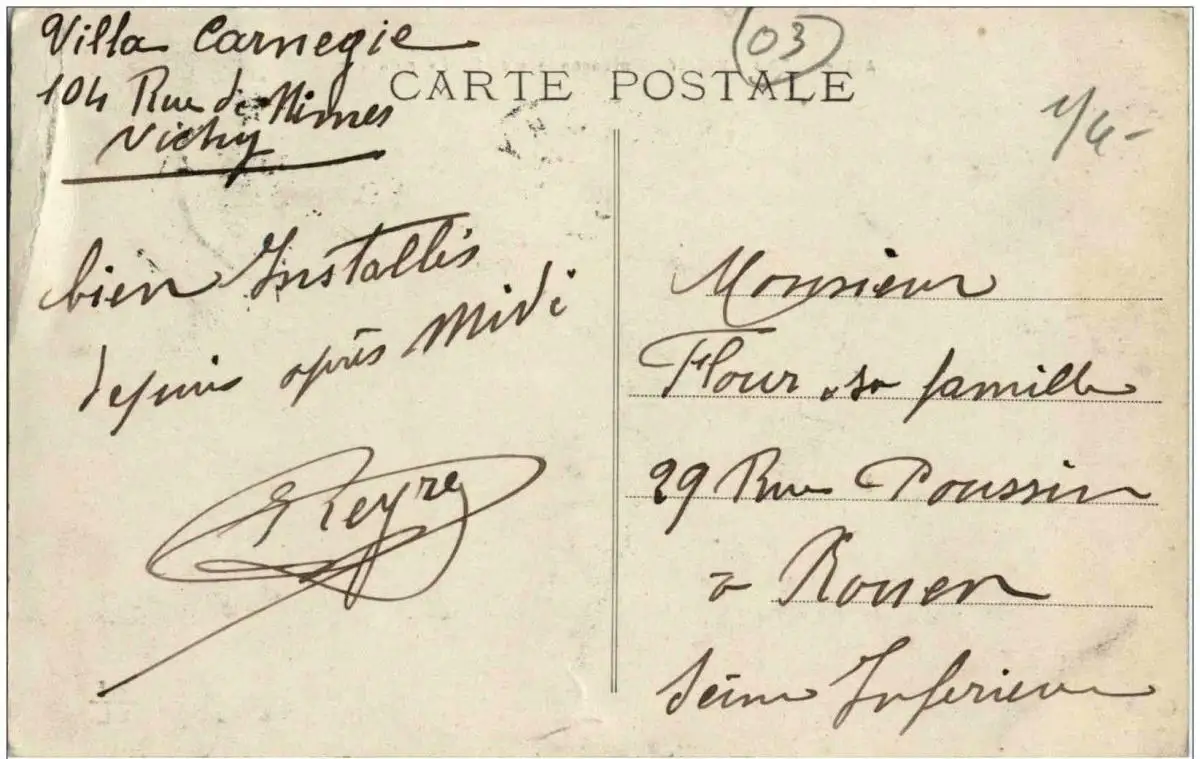 Villa Carnegie
104 Rue de Nimes
Vichy
(03)
CARTE POSTALE
1/4-
bien Installés
depuis après Midi
Reyre
Monsieur
Flour & sa famille
29 Rue Poussin
à Rouen
Seine Inferieure